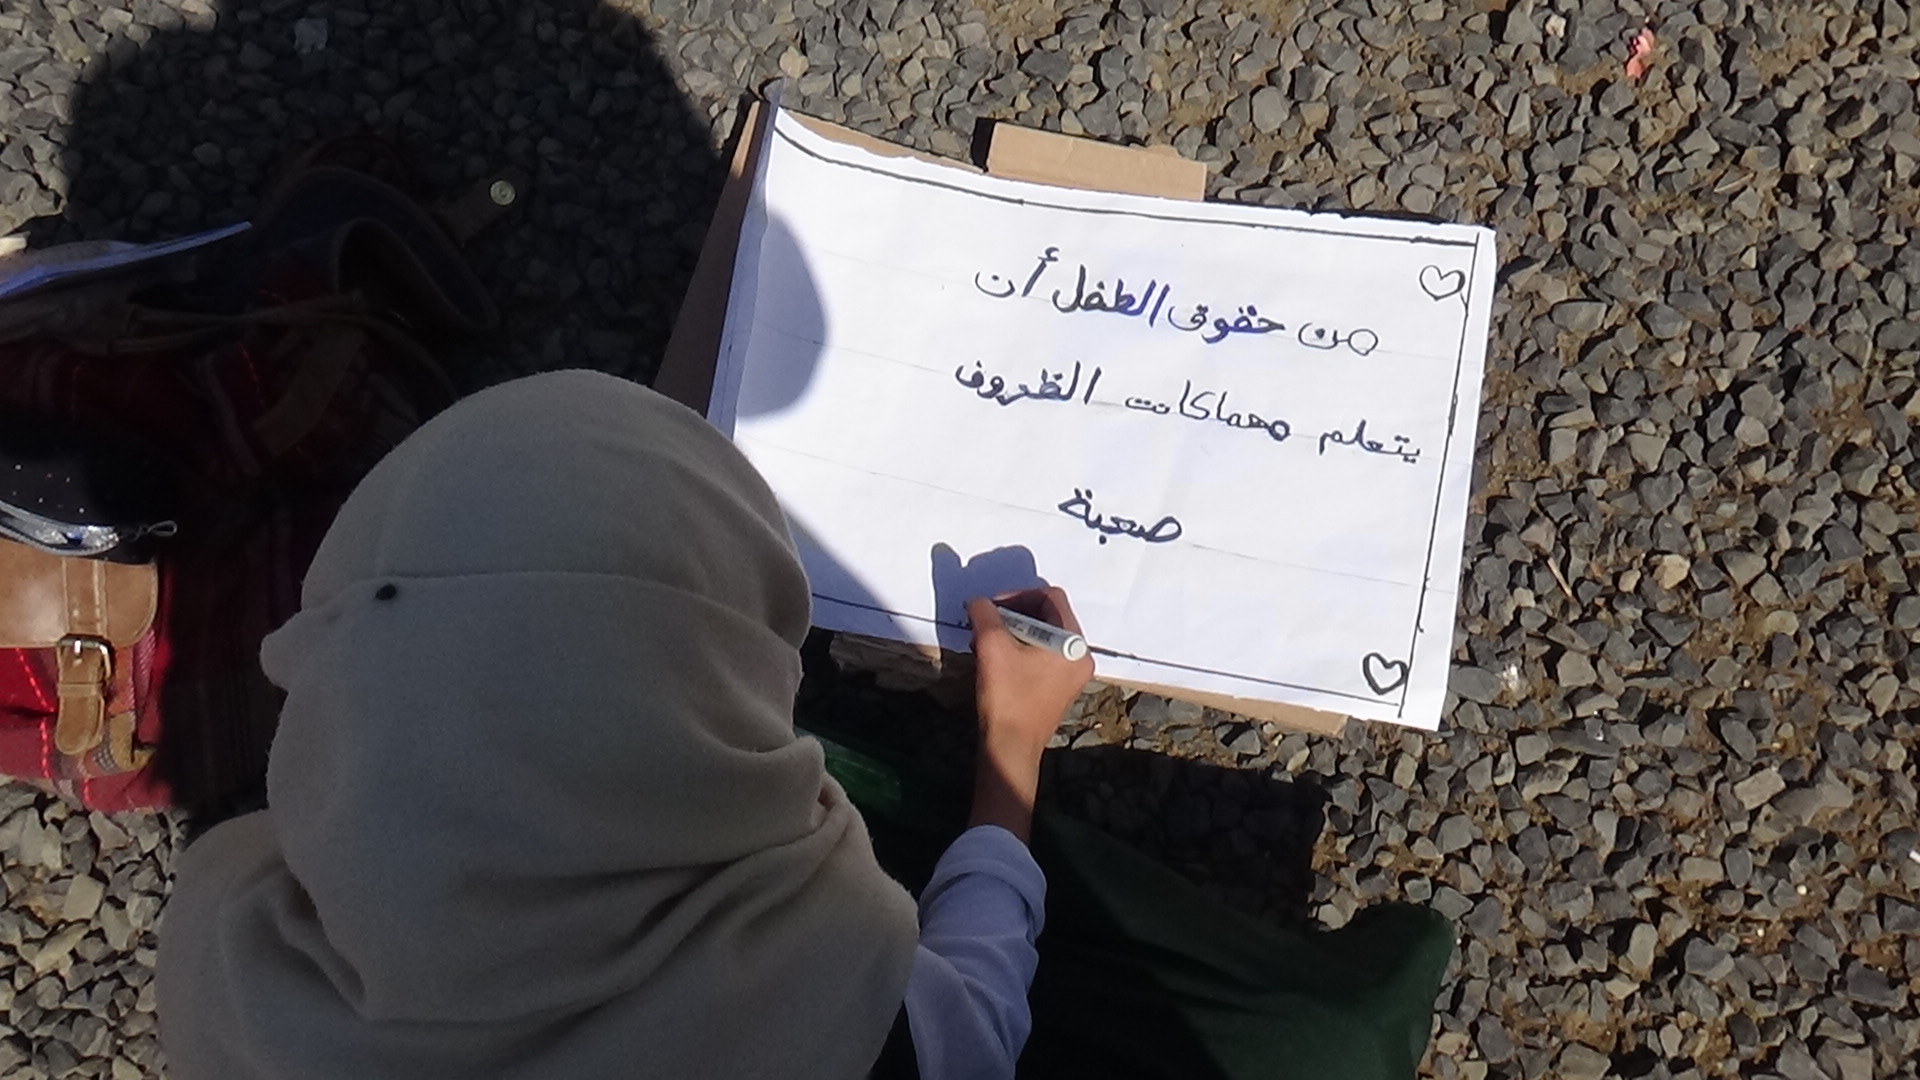 من حقوق الطفل أن
يتعلم مهما كانت الظروف
صعبة